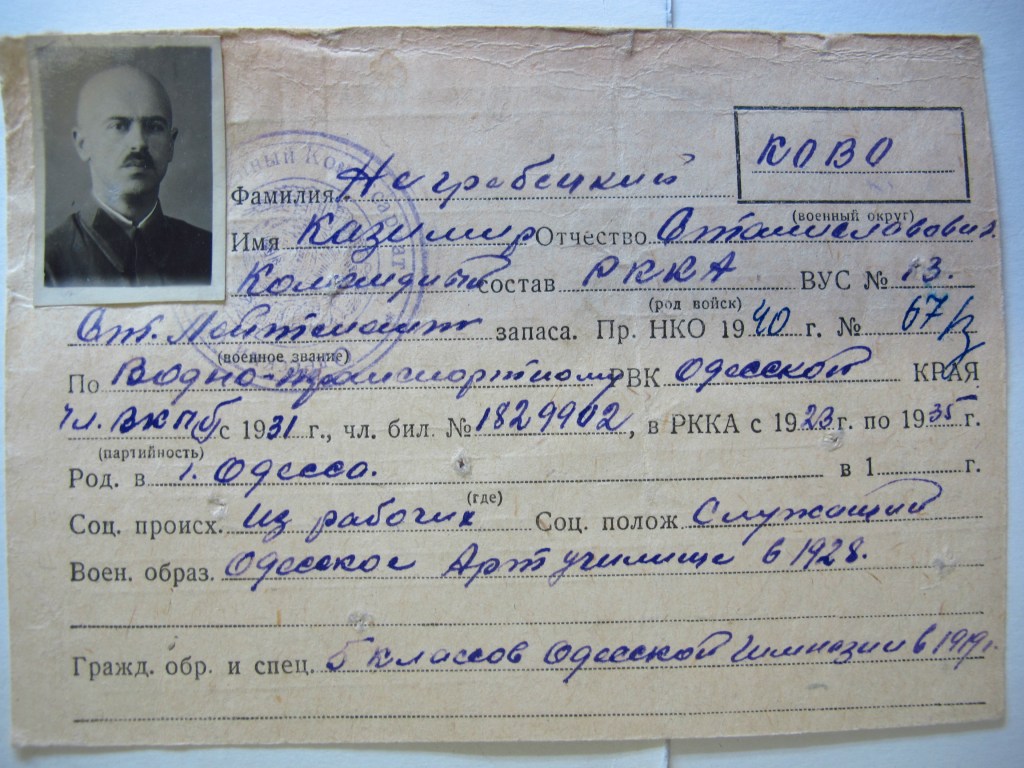 КОВО
(военный округ)
Фамилия Награбецкий
Имя Казимир Отчество Станиславович
Командный состав РККА ВУС № 13.
(род войск)
Ст. Лейтенант запаса. Пр. НКО 1940 г. № 67/з
(военное звание)
По Водно-транспортному РВК Одесской КРАЯ
Чл. ВКПб с 1931 г., чл. бил. № 1829902, в РККА с 1923 г. по 1935 г.
(партийность)
Род. в г. Одесса. в 1 г.
(где)
Соц. происх. из рабочих Соц. полож Служащий
Воен. образ. Одесское Арт училище в 1928.
Гражд. обр. и спец. 5 классов Одесской гимназии в 1919 г.